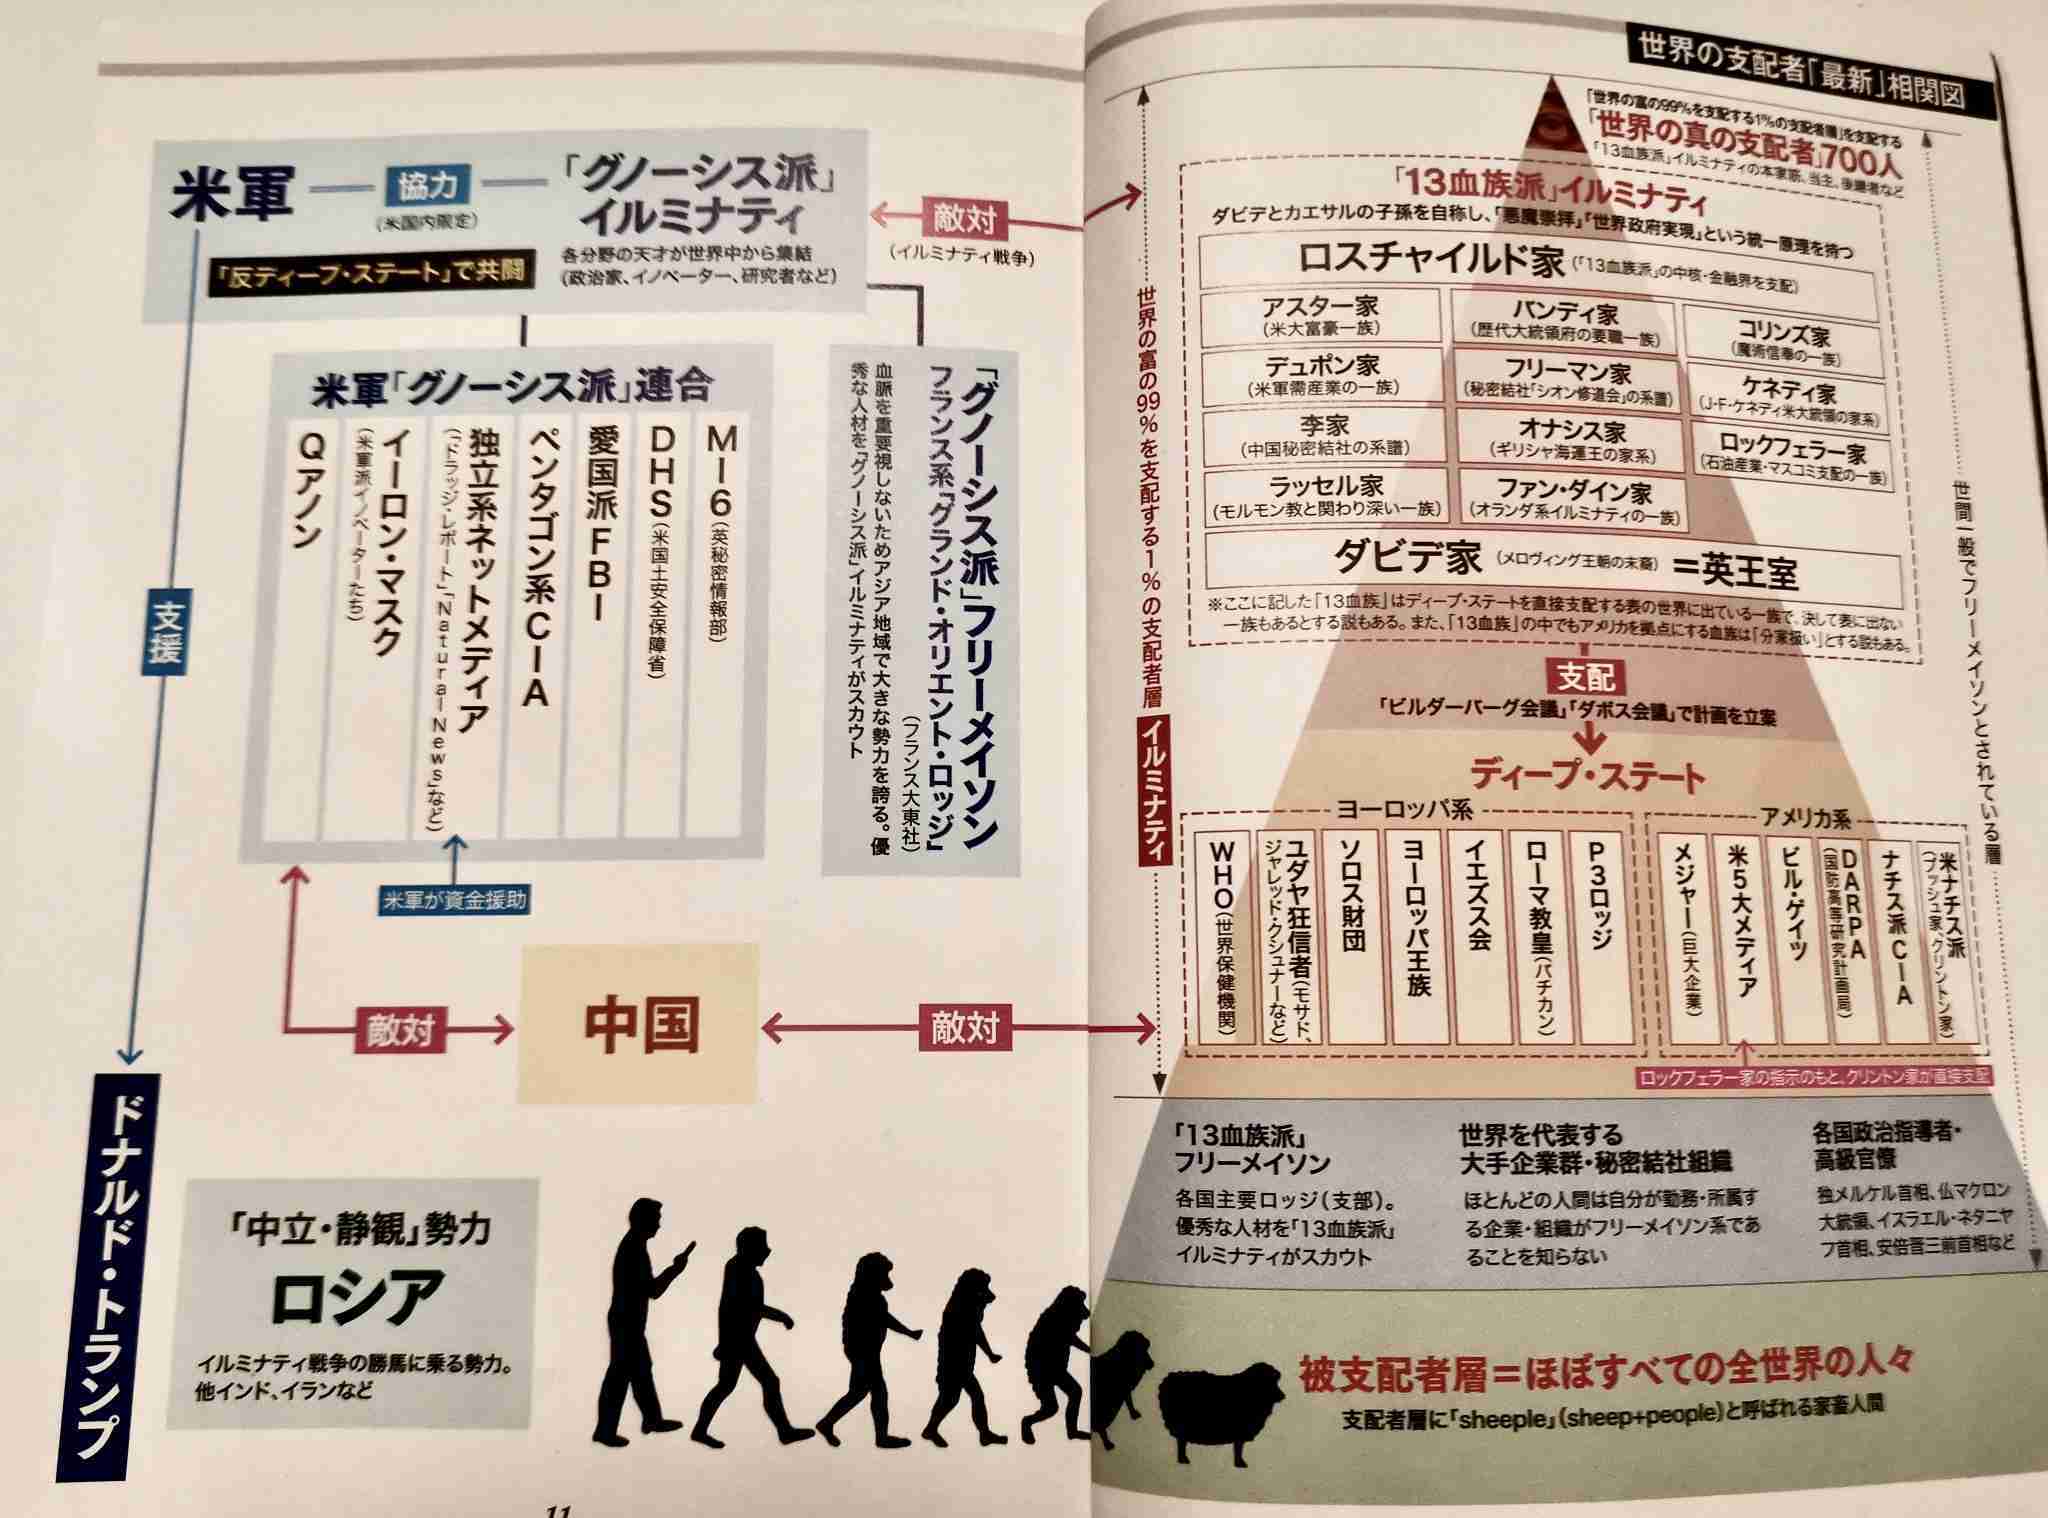 世界の支配者「最新」相関図
「世界の富の99%を支配する1%の支配者層」を支配する
「世界の真の支配者」700人
「13血族派」イルミナティの本家筋、当主、後継者など
「13血族派」イルミナティ
ダビデとカエサルの子孫を自称し、「悪魔崇拝」「世界政府実現」という統一原理を持つ
ロスチャイルド家（「13血族派」の中核・金融界を支配）
アスター家
（米大富豪一族）
バンディ家
（歴代大統領府の要職一族）
コリンズ家
（魔術信奉の一族）
デュポン家
（米軍需産業の一族）
フリーマン家
（秘密結社「シオン修道会」の系譜）
ケネディ家
（J・F・ケネディ米大統領の家系）
李家
（中国秘密結社の系譜）
オナシス家
（ギリシャ海運王の家系）
ロックフェラー家
（石油産業・マスコミ支配の一族）
ラッセル家
（モルモン教と関わり深い一族）
ファン・ダイン家
（オランダ系イルミナティの一族）
ダビデ家（メロヴィング王朝の末裔）＝英王室
※ここに記した「13血族」はディープ・ステートを直接支配する表の世界に出ている一族で、決して表に出ない
一族もあるとする説もある。また、「13血族」の中でもアメリカを拠点にする血族は「分家扱い」とする説もある。
支配
「ビルダーバーグ会議」「ダボス会議」で計画を立案
ディープ・ステート
ヨーロッパ系
WHO（世界保健機関）
ユダヤ狂信者（モサド、
ジャレッド・クシュナーなど）
ソロス財団
ヨーロッパ王族
イエズス会
ローマ教皇（バチカン）
P3ロッジ
アメリカ系
メジャー（巨大企業）
米5大メディア
ビル・ゲイツ
DARPA
（国防高等研究計画局）
ナチス派CIA
米ナチス派
（ブッシュ家、クリントン家）
ロックフェラー家の指示のもと、クリントン家が直接支配
世界の富の99%を支配する1%の支配者層
イルミナティ
世間一般でフリーメイソンとされている層
「13血族派」
フリーメイソン
各国主要ロッジ（支部）。
優秀な人材を「13血族派」
イルミナティがスカウト
世界を代表する
大手企業群・秘密結社組織
ほとんどの人間は自分が勤務・所属す
る企業・組織がフリーメイソン系であ
ることを知らない
各国政治指導者・
高級官僚
独メルケル首相、仏マクロン
大統領、イスラエル・ネタニヤ
フ首相、安倍晋三前首相など
被支配者層＝ほぼすべての全世界の人々
支配者層に「sheeple」（sheep+people）と呼ばれる家畜人間
米軍
協力
（米国内限定）
「グノーシス派」
イルミナティ
各分野の天才が世界中から集結
（政治家、イノベーター、研究者など）
「反ディープ・ステート」で共闘
敵対
（イルミナティ戦争）
米軍「グノーシス派」連合
MI6（英秘密情報部）
DHS（米国土安全保障省）
愛国派FBI
ペンタゴン系CIA
独立系ネットメディア
（「ドラッジ・レポート」「Natural News」など）
イーロン・マスク
（米軍派イノベーターたち）
Qアノン
米軍が資金援助
「グノーシス派」フリーメイソン
フランス系「グランド・オリエント・ロッジ」
（フランス大東社）
血脈を重要視しないためアジア地域で大きな勢力を誇る。優
秀な人材を「グノーシス派」イルミナティがスカウト
支援
ドナルド・トランプ
敵対
中国
敵対
「中立・静観」勢力
ロシア
イルミナティ戦争の勝馬に乗る勢力。
他インド、イランなど
11